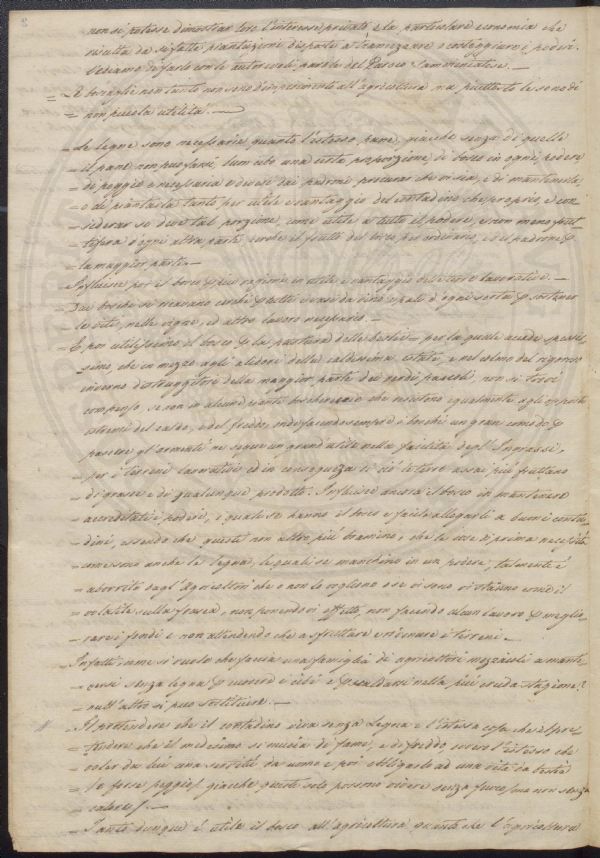 non si potesse dimostrar loro l'interesse privato, e la particolare economia che
risulta da sifatte piantazioni disposte a tramezzare e costeggiare i poderi.
Vediamo di farlo con le autorevoli parole del Parroco Samminiatese. —
= E boscaglie non tanto non sono di nocimento all'agricoltura ma piuttosto le sono di
= non piccola utilità. —
- Le legne sono necessarie quanto l'istesso pane, giacchè senza di quelle
- il pane non può farsi, dunque una certa proporzione di bosco in ogni podere
- di poggio è necessaria e devesi dai padroni procurar che vi sia, e di mantenerla,
- o di piantarla tanto per utile e vantaggio del contadino che proprio, e con
- siderar si deve tal porzione, come utile a tutto il podere, e non meno frut
- tifera d'ogni altra parte, perchè il frutto del bosco per ordinario, è del padrone p
= la maggior parte. —
- Influisce poi il bosco p più ragioni in utile e vantaggio delle terre lavorative. —
- Dai boschi si ricavano cerchi p botti e vasi da vino e pali d'ogni sorta p sostener
- le viti, nelle vigne, ed altro lavoro necessario. —
- È poi utilissimo il bosco p la pastura delle bestie per la quale accade spessis
- simo, che in mezzo agli alidori della caldissima estate, e nel colmo del rigoroso
- inverno distruggitore della maggior parte dei verdi pascoli, non si trovi
- compenso, se non in alcune piante boscherecce che resistono egualmente agli opposti
- estremi del caldo, e del freddo, onde facendo sempre i boschi un gran comodo p
- pascere gl'armenti ne segue un grand'utile nella facilità degl'Ingrassi,
- per i terreni lavorativi ed in conseguenza di ciò le terre assai più fruttano
- di grasce e di qualunque prodotto. Influisce ancora il bosco in mantenere
- accreditati i poderi, i quali se hanno il bosco è facile allogarli a buoni conta
- dini, essendo che questi non altro più bramino, che le cose di prima necessità
- come sono anche le legna, le quali se manchino in un podere, talmente è
- aborrito dagl'Agricoltori che o non lo vogliono o se vi sono vi stanno come il
- volatile sulla frasca, non ponendovi affetto, non facendo alcun lavoro p meglio
- rare i fondi e non attendendo che a sfruttare e rovinare i terreni. —
- Infatti come si vuole che faccia una famiglia di agricoltori mezzaioli a mante
- nersi senza legna p cuocere i cibi e p scaldarsi nella più cruda stagione?
- null'altro si può sostituire. —
- Il pretendere che il contadino viva senza Legna è l'istessa cosa che il pre
- tendere che il medesimo si muoia di fame, e di freddo ovvero l'istesso che
- voler da lui una servitù da uomo e poi obbligarlo ad una vita da bestia
- (e forse peggio) giacchè queste solo possono vivere senza fuoco (ma non senza
- calore). —
- Tanto dunque è utile il bosco all'agricoltura quanto che l'agricoltura